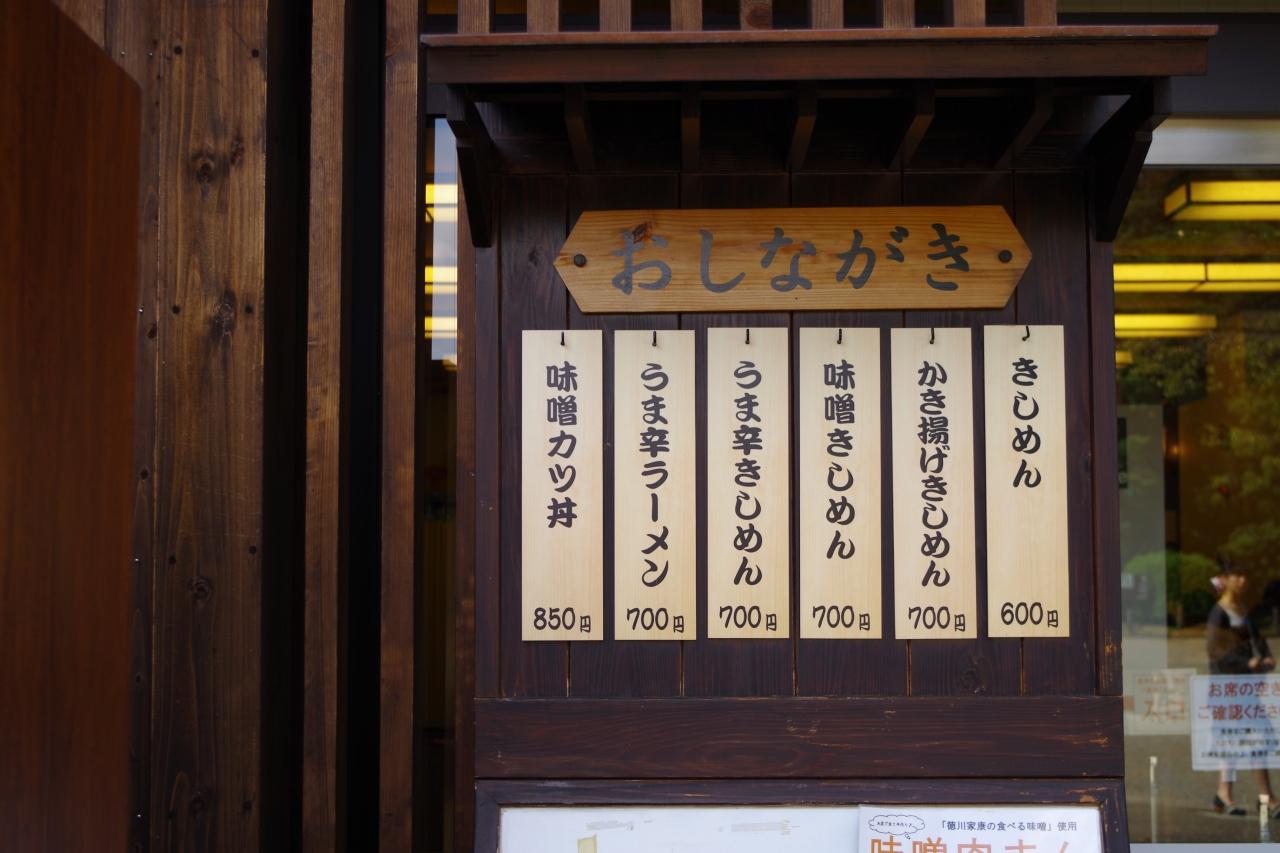 おしながき
きしめん
600円
かき揚げきしめん
700円
味噌きしめん
700円
うま辛きしめん
700円
うま辛ラーメン
700円
味噌カツ丼
850円
お席の空き
ご確認くださ
入口
「徳川家康の食べる味噌」使用
味噌肉まん